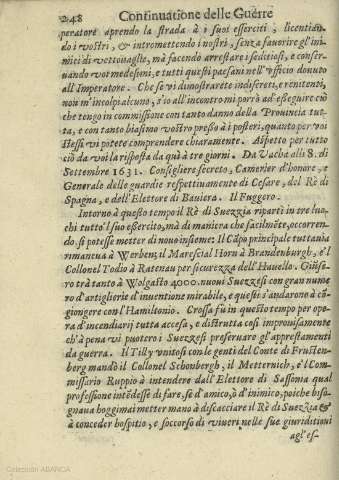 248 Continuatione delle Guerre
peratore aprendo la strada à i suoi esserciti, licentian-
do i vostri, & intromettendo i nostri, senza fauorire gl'ini-
mici di vettouaglie, mà facendo arrestare i seditiosi, e conser-
uando voi medesimi, e tutti questi paesani nell'vfficio douuto
all'Imperatore. Che se vi dimostrarete indiscreti, e renitenti,
non m'incolpi alcuno, s'io all'incontro mi porrò ad esseguir ciò
che tengo in commissione con tanto danno della Prouincia tut-
ta, e con tanto biasimo vostro presso à i posteri, quanto per voi
stessi vi potete comprendere chiaramente. Aspetto per tutto
ciò da voi la risposta da quà à tre giorni. Da Vacha alli 8. di
Settembre 1631. Consigliere secreto, Camerier d'honore, e
Generale delle guardie respettiuamente di Cesare, del Rè di
Spagna, e dell'Elettore di Bauiera. Il Fuggero.
Intorno à questo tempo il Rè di Suezzia ripartì in tre luo-
chi tutto'l suo essercito, mà di maniera che facilmẽte, occorren-
do, si potesse metter di nuouo insieme: Il Cãpo principale tuttauia
rimaneua à Werben, il Marescial Horn à Brandenburgh, e'l
Collonel Todio à Ratenau per sicurezza dell'Hauello. Giũse-
ro trà tanto à Wolgasto 4000. nuoui Suezzesi con gran nume
ro d'artiglierie d'inuentione mirabile, e questi s'andarono à cõ-
giongere con l'Hamiltonio. Crossa fù in questo tempo per ope-
ra d'incendiarij tutta accesa, e distrutta così improuisamente
ch'à pena vi puotero i Suezzesi preseruare gl'apprestamenti
da guerra. Il Tilly vnitosi con le genti del Conte di Frusten-
berg mandò il Collonel Schonbergh, il Metternich, e'l Com-
missario Ruppio à intendere dall'Elettore di Sassonia qual
professione intẽdesse di fare, se d'amico, ò d'inimico, poiche biso-
gnaua hoggimai metter mano à discacciare il Rè di Suezzia &
à conceder hospitio, e soccorso di viueri nelle sue giuriditioni
agl'es-
Colección ABANCA